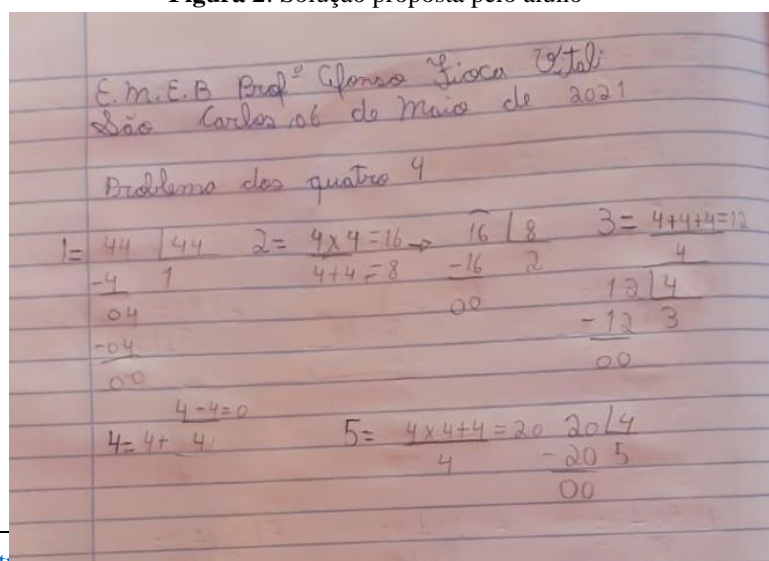 Figura 2: Solução proposta pelo aluno
E.M.E.B Profº Afonso Fioca Vitali
São Carlos, 06 de Maio de 2021
Problema dos quatro 4
1= 44 | 44 2= 4x4=16 → 16 | 8 3= 4+4+4=12
-4 1 4+4=8 -16 2 4
04 00 12 | 4
-04 -12 3
00 00
4-4=0
4= 4+ 4 5= 4x4+4=20 20 | 4
4 -20 5
00